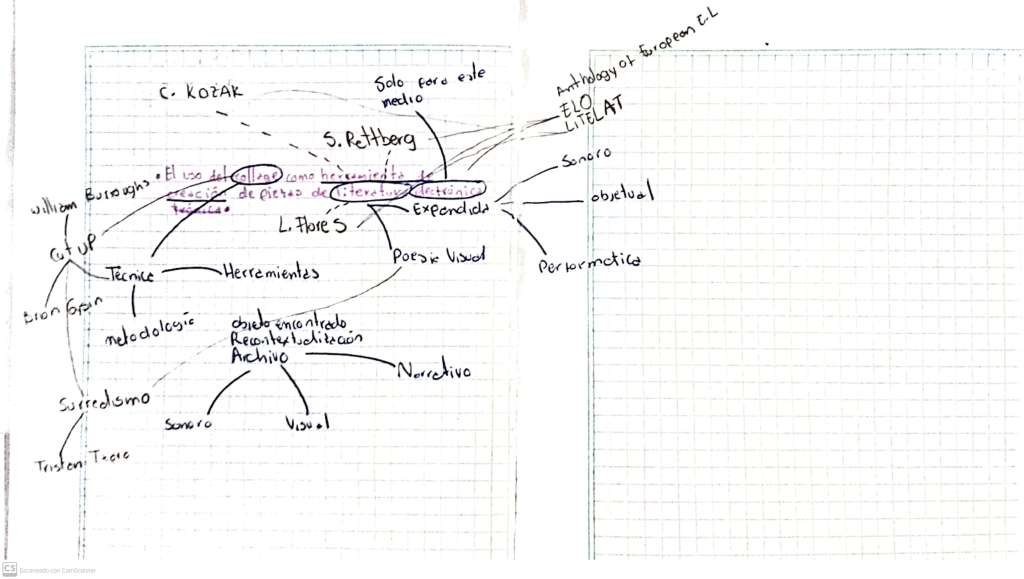 Anthology of European E.L
ELO
LITELAT
Solo para este
medio
C. KOZAK
S. Rettberg
Sonoro
• El uso del collage como herramienta de
creación de piezas de literatura electrónica
William Burroughs
objetual
Expandida
L. Flores
Cut up
Poesia Visual
Performatica
Técnica
Herramientas
Brion Gysin
metodología
objeto encontrado
Recontextualización
Archivo
Narrativo
Surrealismo
Sonoro
Visual
Tristan Tzara
CS Escaneado con CamScanner